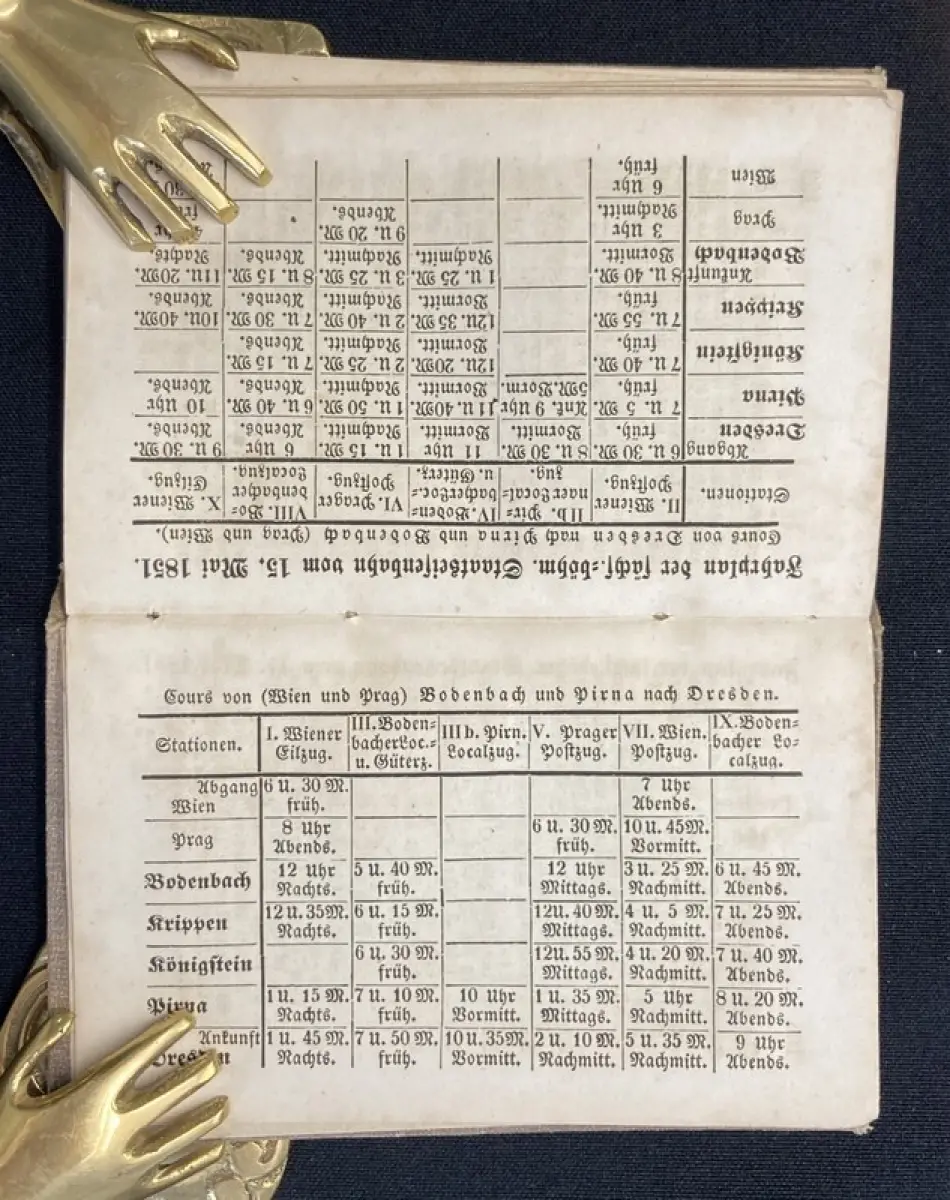 Fahrplan der sächs.=böhm. Staatseisenbahn vom 15. Mai 1851.
Cours von Dresden nach Pirna und Bodenbach (Prag und Wien).
II b. Pir= IV. Boden= VIII. Bo=
Stationen. II. Wiener naer Local= bacherLoc.= VI. Prager denbacher X. Wiener
Postzug. zug. u. Güterz. Postzug. Localzug. Eilzug.
Abgang 6 u. 30 M. 8 u. 30 M. 11 Uhr 1 u. 15 M. 6 Uhr 9 u. 30 M.
Dresden früh. Vormitt. Vormitt. Nachmitt. Abends. Abends.
Pirna 7 u. 5 M. Ank. 9 Uhr 11u.40M. 1 u. 50 M. 6 u. 40 M. 10 Uhr
früh. 5M. Vorm. Vormitt. Nachmitt. Abends. Abends.
Königstein 7 u. 40 M. 12u. 20M. 2 u. 25 M. 7 u. 15 M.
früh. Vormitt. Nachmitt. Abends.
Krippen 7 u. 55 M. 12u. 35 M. 2 u. 40 M. 7 u. 30 M. 10u. 40M.
früh. Vormitt. Nachmitt. Abends. Abends.
Ankunft 8 u. 40 M. 1 u. 25 M. 3 u. 25 M. 8 u 15 M. 11u. 20M.
Bodenbach Vormitt. Nachmitt. Nachmitt. Abends. Nachts.
Prag 3 Uhr 9 u. 20 M.
Nachmitt. Abends.
Wien 6 Uhr
früh.
Cours von (Wien und Prag) Bodenbach und Pirna nach Dresden.
III.Boden= IX.Boden=
Stationen. I. Wiener bacherLoc.= IIIb. Pirn. V. Prager VII. Wien. bacher Lo=
Eilzug. u. Güterz. Localzug. Postzug. Postzug. calzug.
Abgang 6 U. 30 M. 7 Uhr
Wien früh. Abends.
Prag 8 Uhr 6 u. 30 M. 10 U. 45M.
Abends. früh. Vormitt.
Bodenbach 12 Uhr 5 U. 40 M. 12 Uhr 3 u. 25 M. 6 U. 45 M.
Nachts. früh. Mittags. Nachmitt. Abends.
Krippen 12 U. 35M. 6 U. 15 M. 12U. 40M. 4 U. 5 M. 7 U. 25 M.
Nachts. früh. Mittags. Nachmitt. Abends.
Königstein 6 U. 30 M. 12U. 55 M. 4 U. 20 M. 7 U. 40 M.
früh. Mittags. Nachmitt. Abends.
Pirna 1 U. 15 M. 7 U. 10 M. 10 Uhr 1 U. 35 M. 5 Uhr 8 U. 20 M.
Nachts. früh. Vormitt. Mittags. Nachmitt. Abends.
Ankunft 1 U. 45 M. 7 U. 50 M. 10U.35M. 2 U. 10 M. 5 U. 35 M. 9 Uhr
Dresden Nachts. früh. Vormitt. Nachmitt. Nachmitt. Abends.